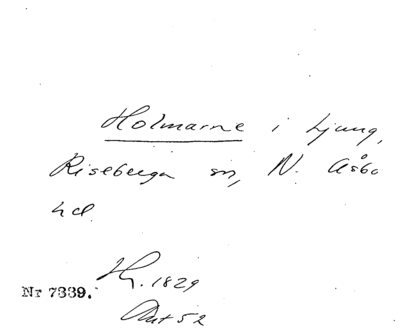 Holmarne i Ljung,
Riseberga sn, N. Åsbo
hd.
Hg. 1829
Nr 7339.
Akt 52